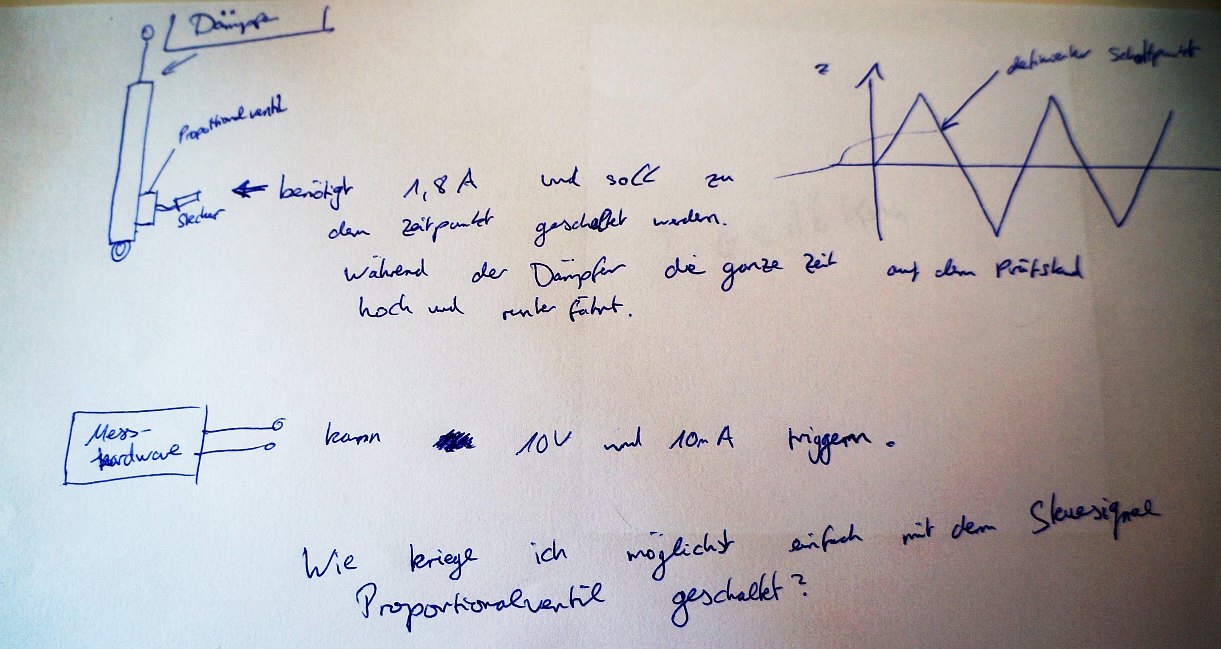 Dämpfer
z
definierter Schaltpunkt
Proportionalventil
Stecker
benötigt 1,8A und soll zu
dem Zeitpunkt geschaltet werden.
während der Dämpfer die ganze Zeit auf dem Prüfstand
hoch und runter fährt.
Mess-
hardware
kann 10V und 10mA triggern.
Wie kriege ich möglichst einfach mit dem Steuersignal
Proportionalventil geschaltet?